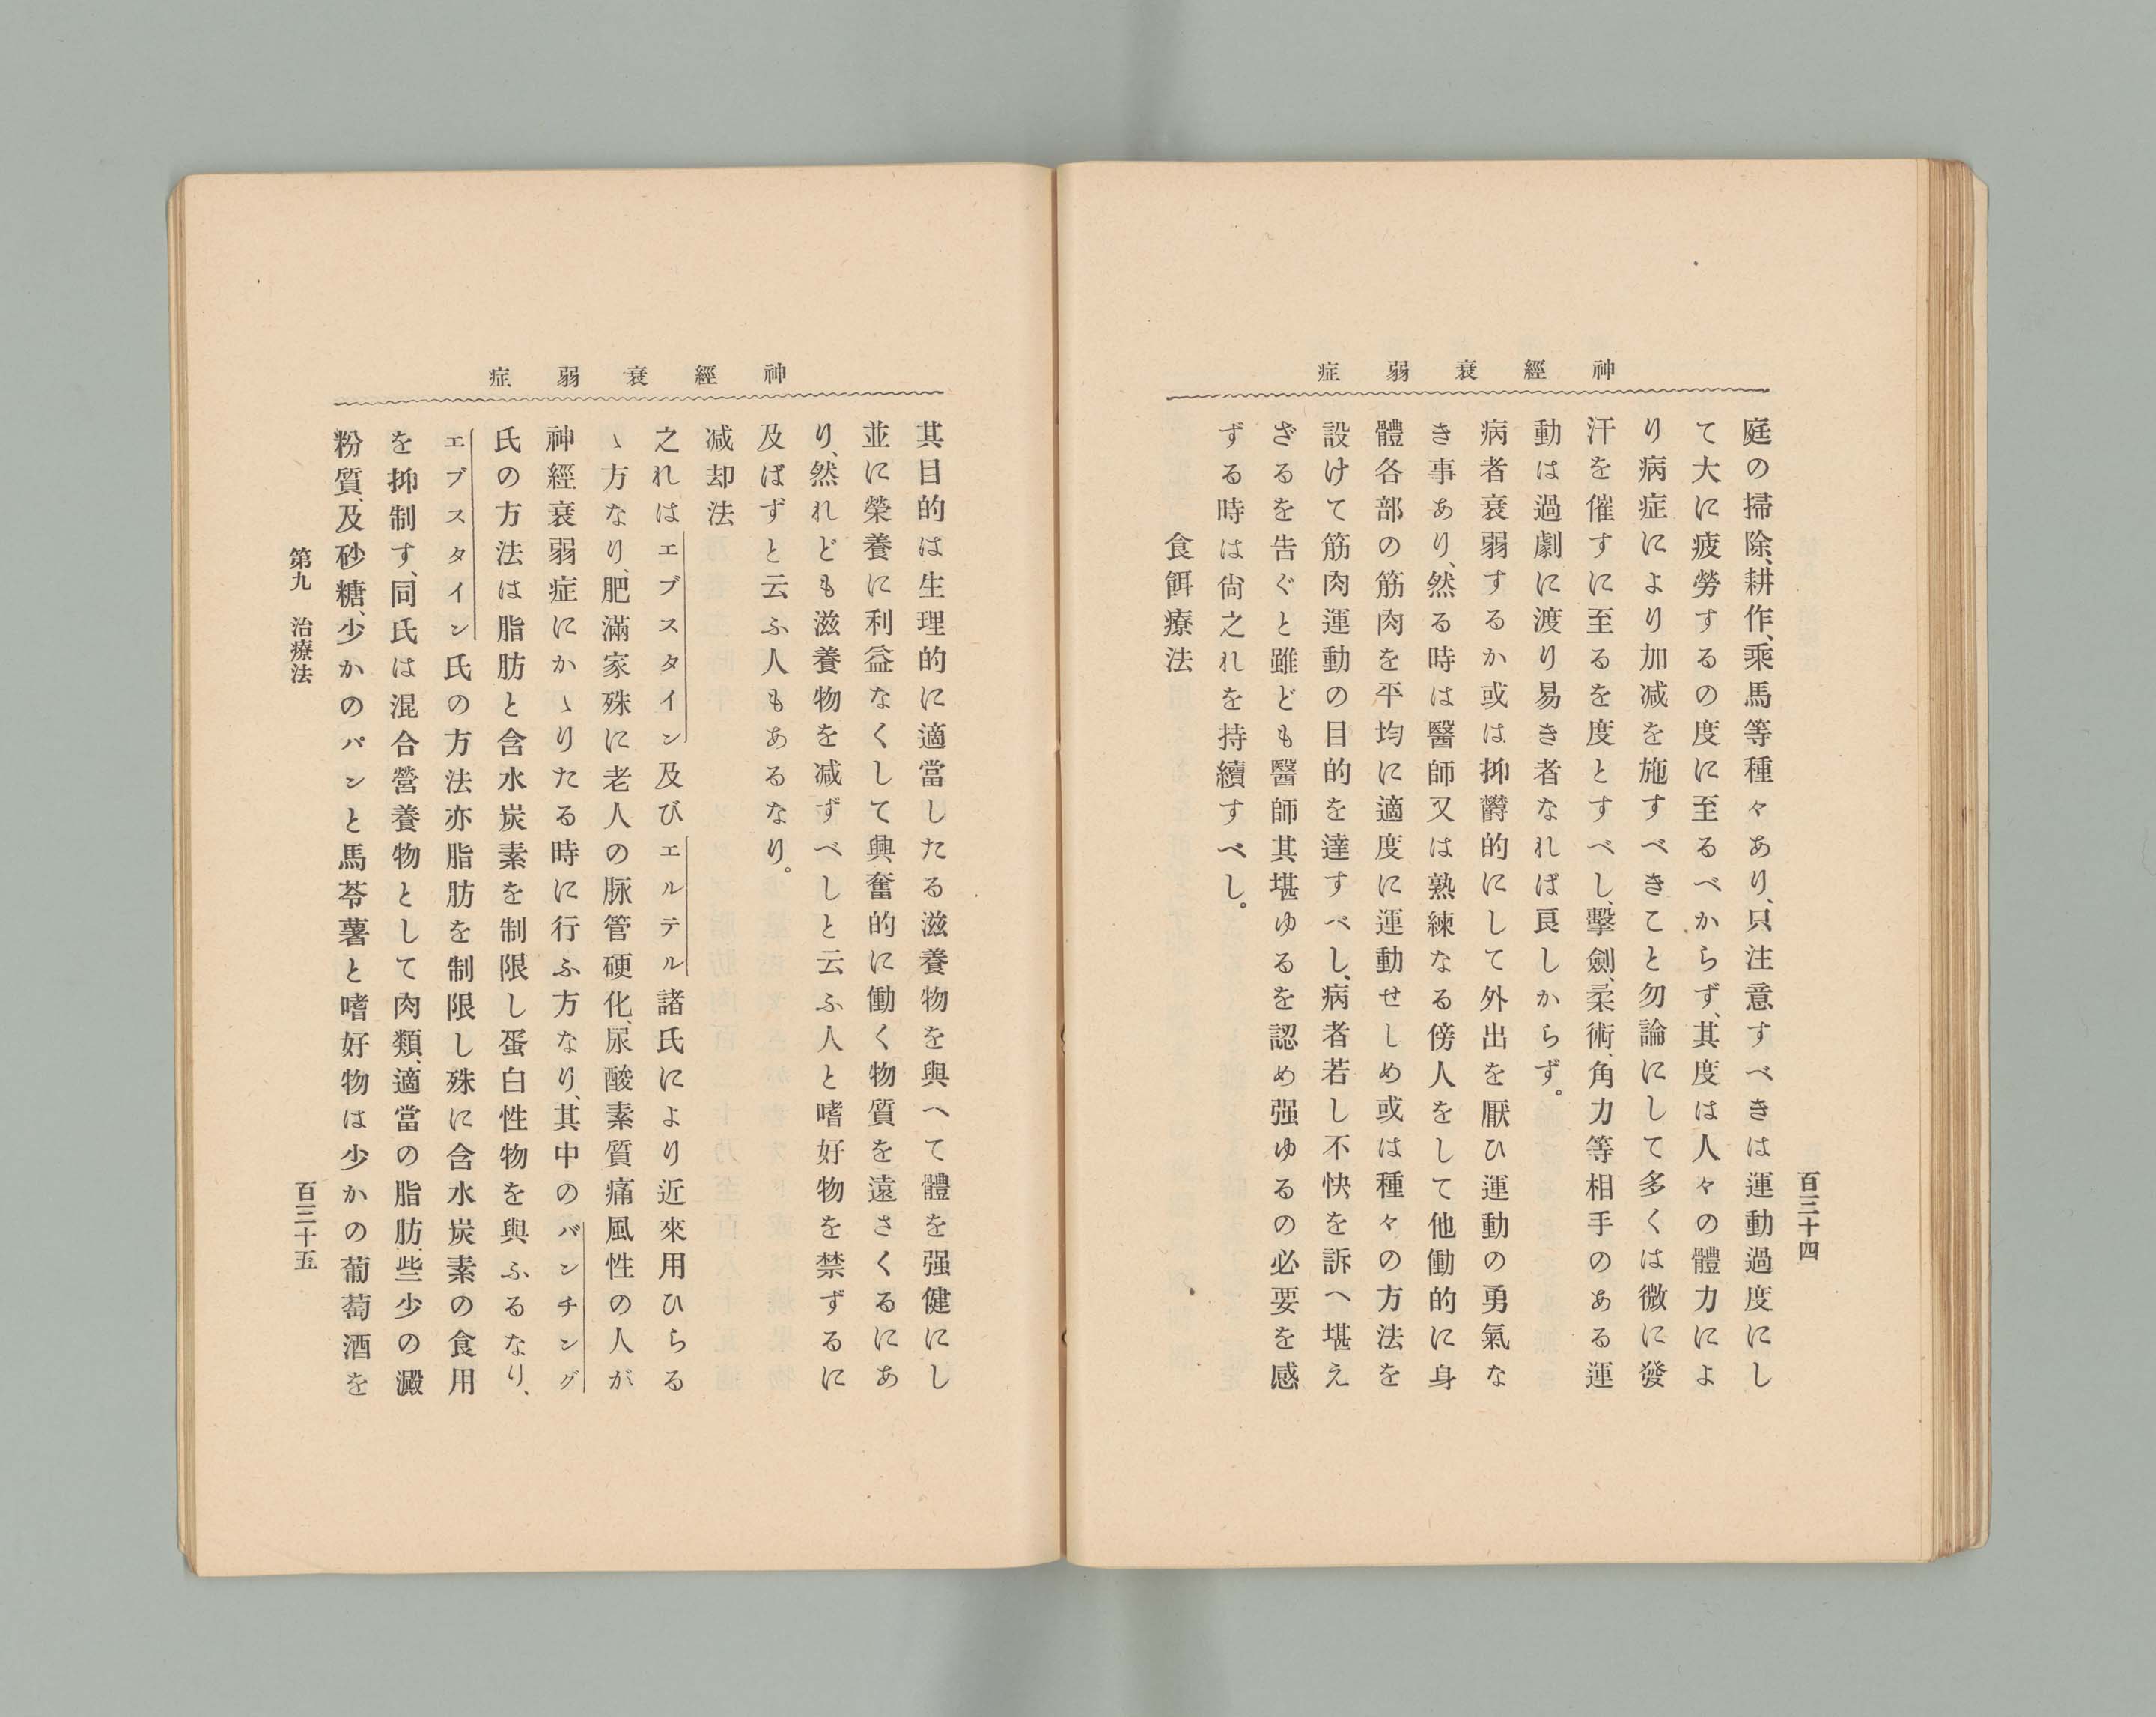 神經衰弱症
百三十四
庭の掃除、耕作、乘馬等種々あり、只注意すべきは運動過度にし
て大に疲勞するの度に至るべからず、其度は人々の體力によ
り病症により加减を施すべきこと勿論にして多くは微に發
汗を催すに至るを度とすべし、擊劍、柔術、角力等相手のある運
動は過劇に渡り易き者なれば良しからず。
病者衰弱するか或は抑欝的にして外出を厭ひ運動の勇氣な
き事あり、然る時は醫師又は熟練なる傍人をして他働的に身
體各部の筋肉を平均に適度に運動せしめ或は種々の方法を
設けて筋肉運動の目的を達すべし、病者若し不快を訴へ堪え
ざるを告ぐと雖ども醫師其堪ゆるを認め强ゆるの必要を感
ずる時は尙之れを持續すべし。
食餌療法
神經衰弱症
其目的は生理的に適當したる滋養物を與へて體を强健にし
並に榮養に利益なくして興奮的に働く物質を遠さくるにあ
り、然れども滋養物を减ずべしと云ふ人と嗜好物を禁ずるに
及ばずと云ふ人もあるなり。
减却法
之れはエブスタイン及びエルテル諸氏により近來用ひらる
ゝ方なり、肥滿家殊に老人の脉管硬化、尿酸素質痛風性の人が
神經衰弱症にかゝりたる時に行ふ方なり、其中のバンチング
氏の方法は脂肪と含水炭素を制限し蛋白性物を與ふるなり、
エブスタイン氏の方法亦脂肪を制限し殊に含水炭素の食用
を抑制す、同氏は混合營養物として肉類、適當の脂肪、些少の澱
粉質、及砂糖、少かのパンと馬苓薯と嗜好物は少かの葡萄酒を
第九　治療法
百三十五